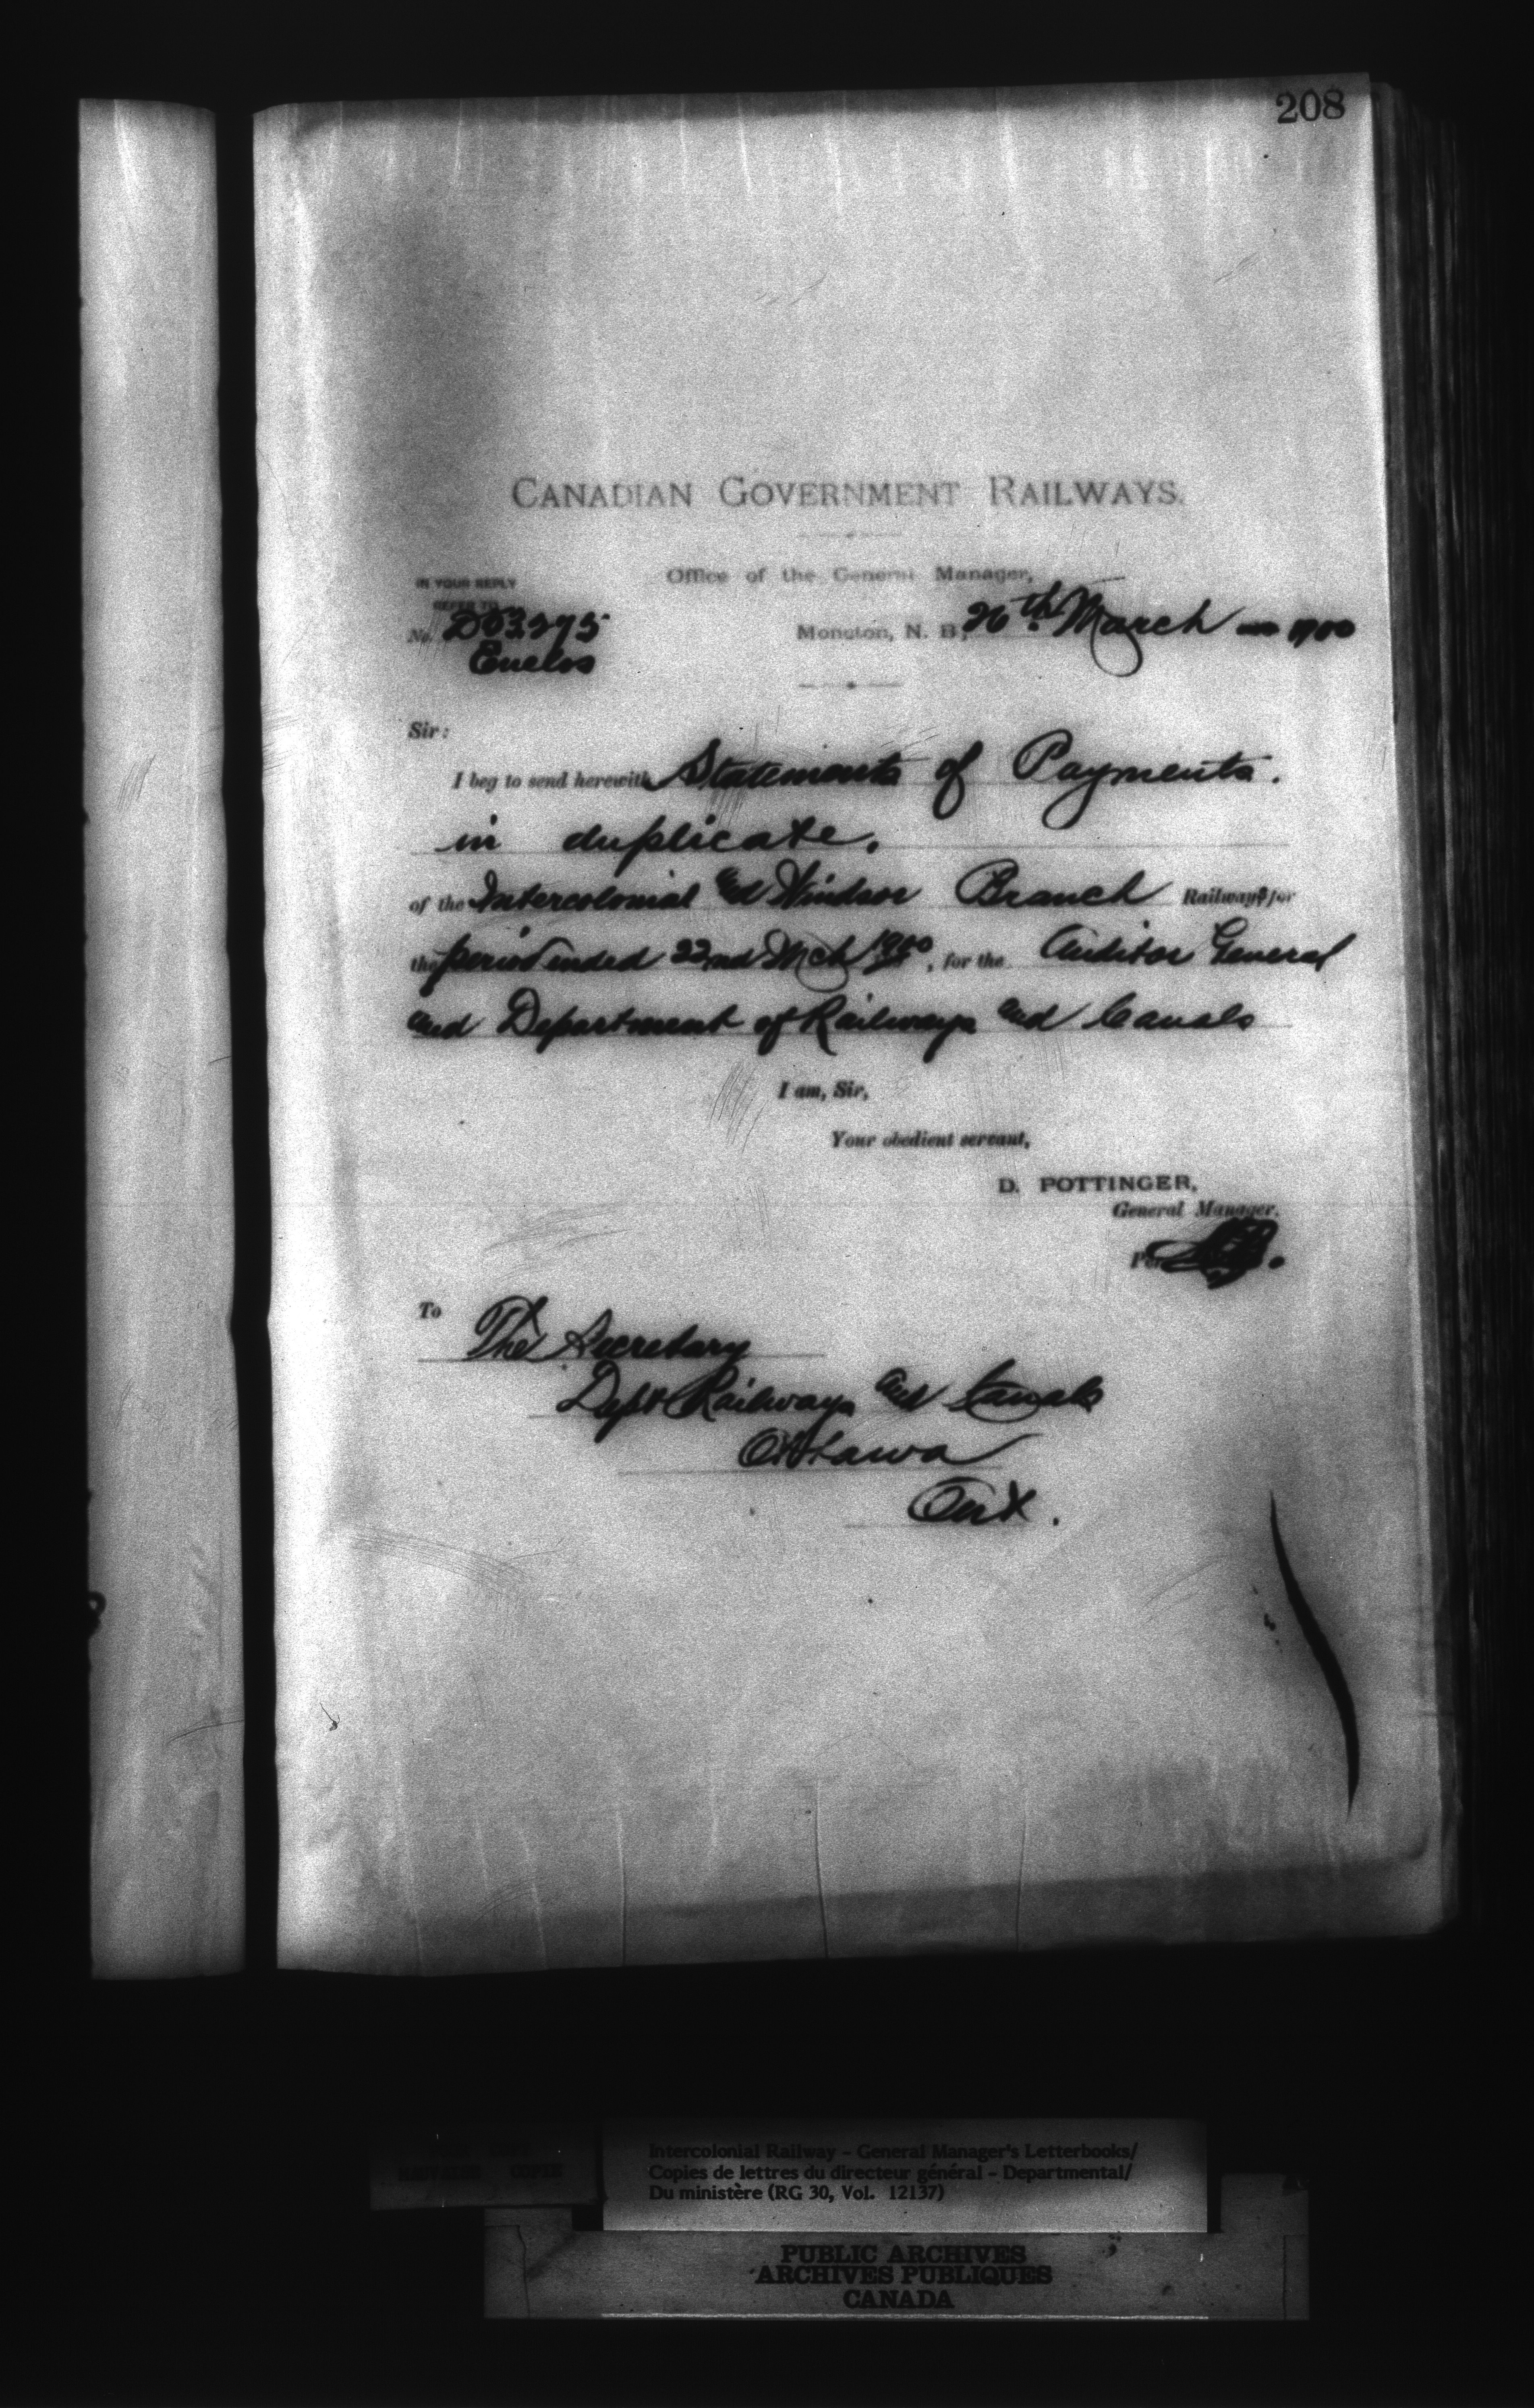 208
CANADIAN GOVERNMENT RAILWAYS.
Office of the General Manager,
IN YOUR REPLY
REFER TO
No. D03295
Enclos
Moncton, N. B., 26th March 1900
Sir:
I beg to send herewith Statements of Payments.
in duplicate.
of the Intercolonial and Windsor Branch Railways for
the period ended 22nd Mch 1900, for the Auditor General
and Department of Railways and Canals
I am, Sir,
Your obedient servant,
D. POTTINGER,
General Manager.
Per
To The Secretary
Dept Railways and Canals
Ottawa
Ont.
Intercolonial Railway - General Manager's Letterbooks/
Copies de lettres du directeur général - Departmental/
Du ministère (RG 30, Vol. 12137)
PUBLIC ARCHIVES
ARCHIVES PUBLIQUES
CANADA